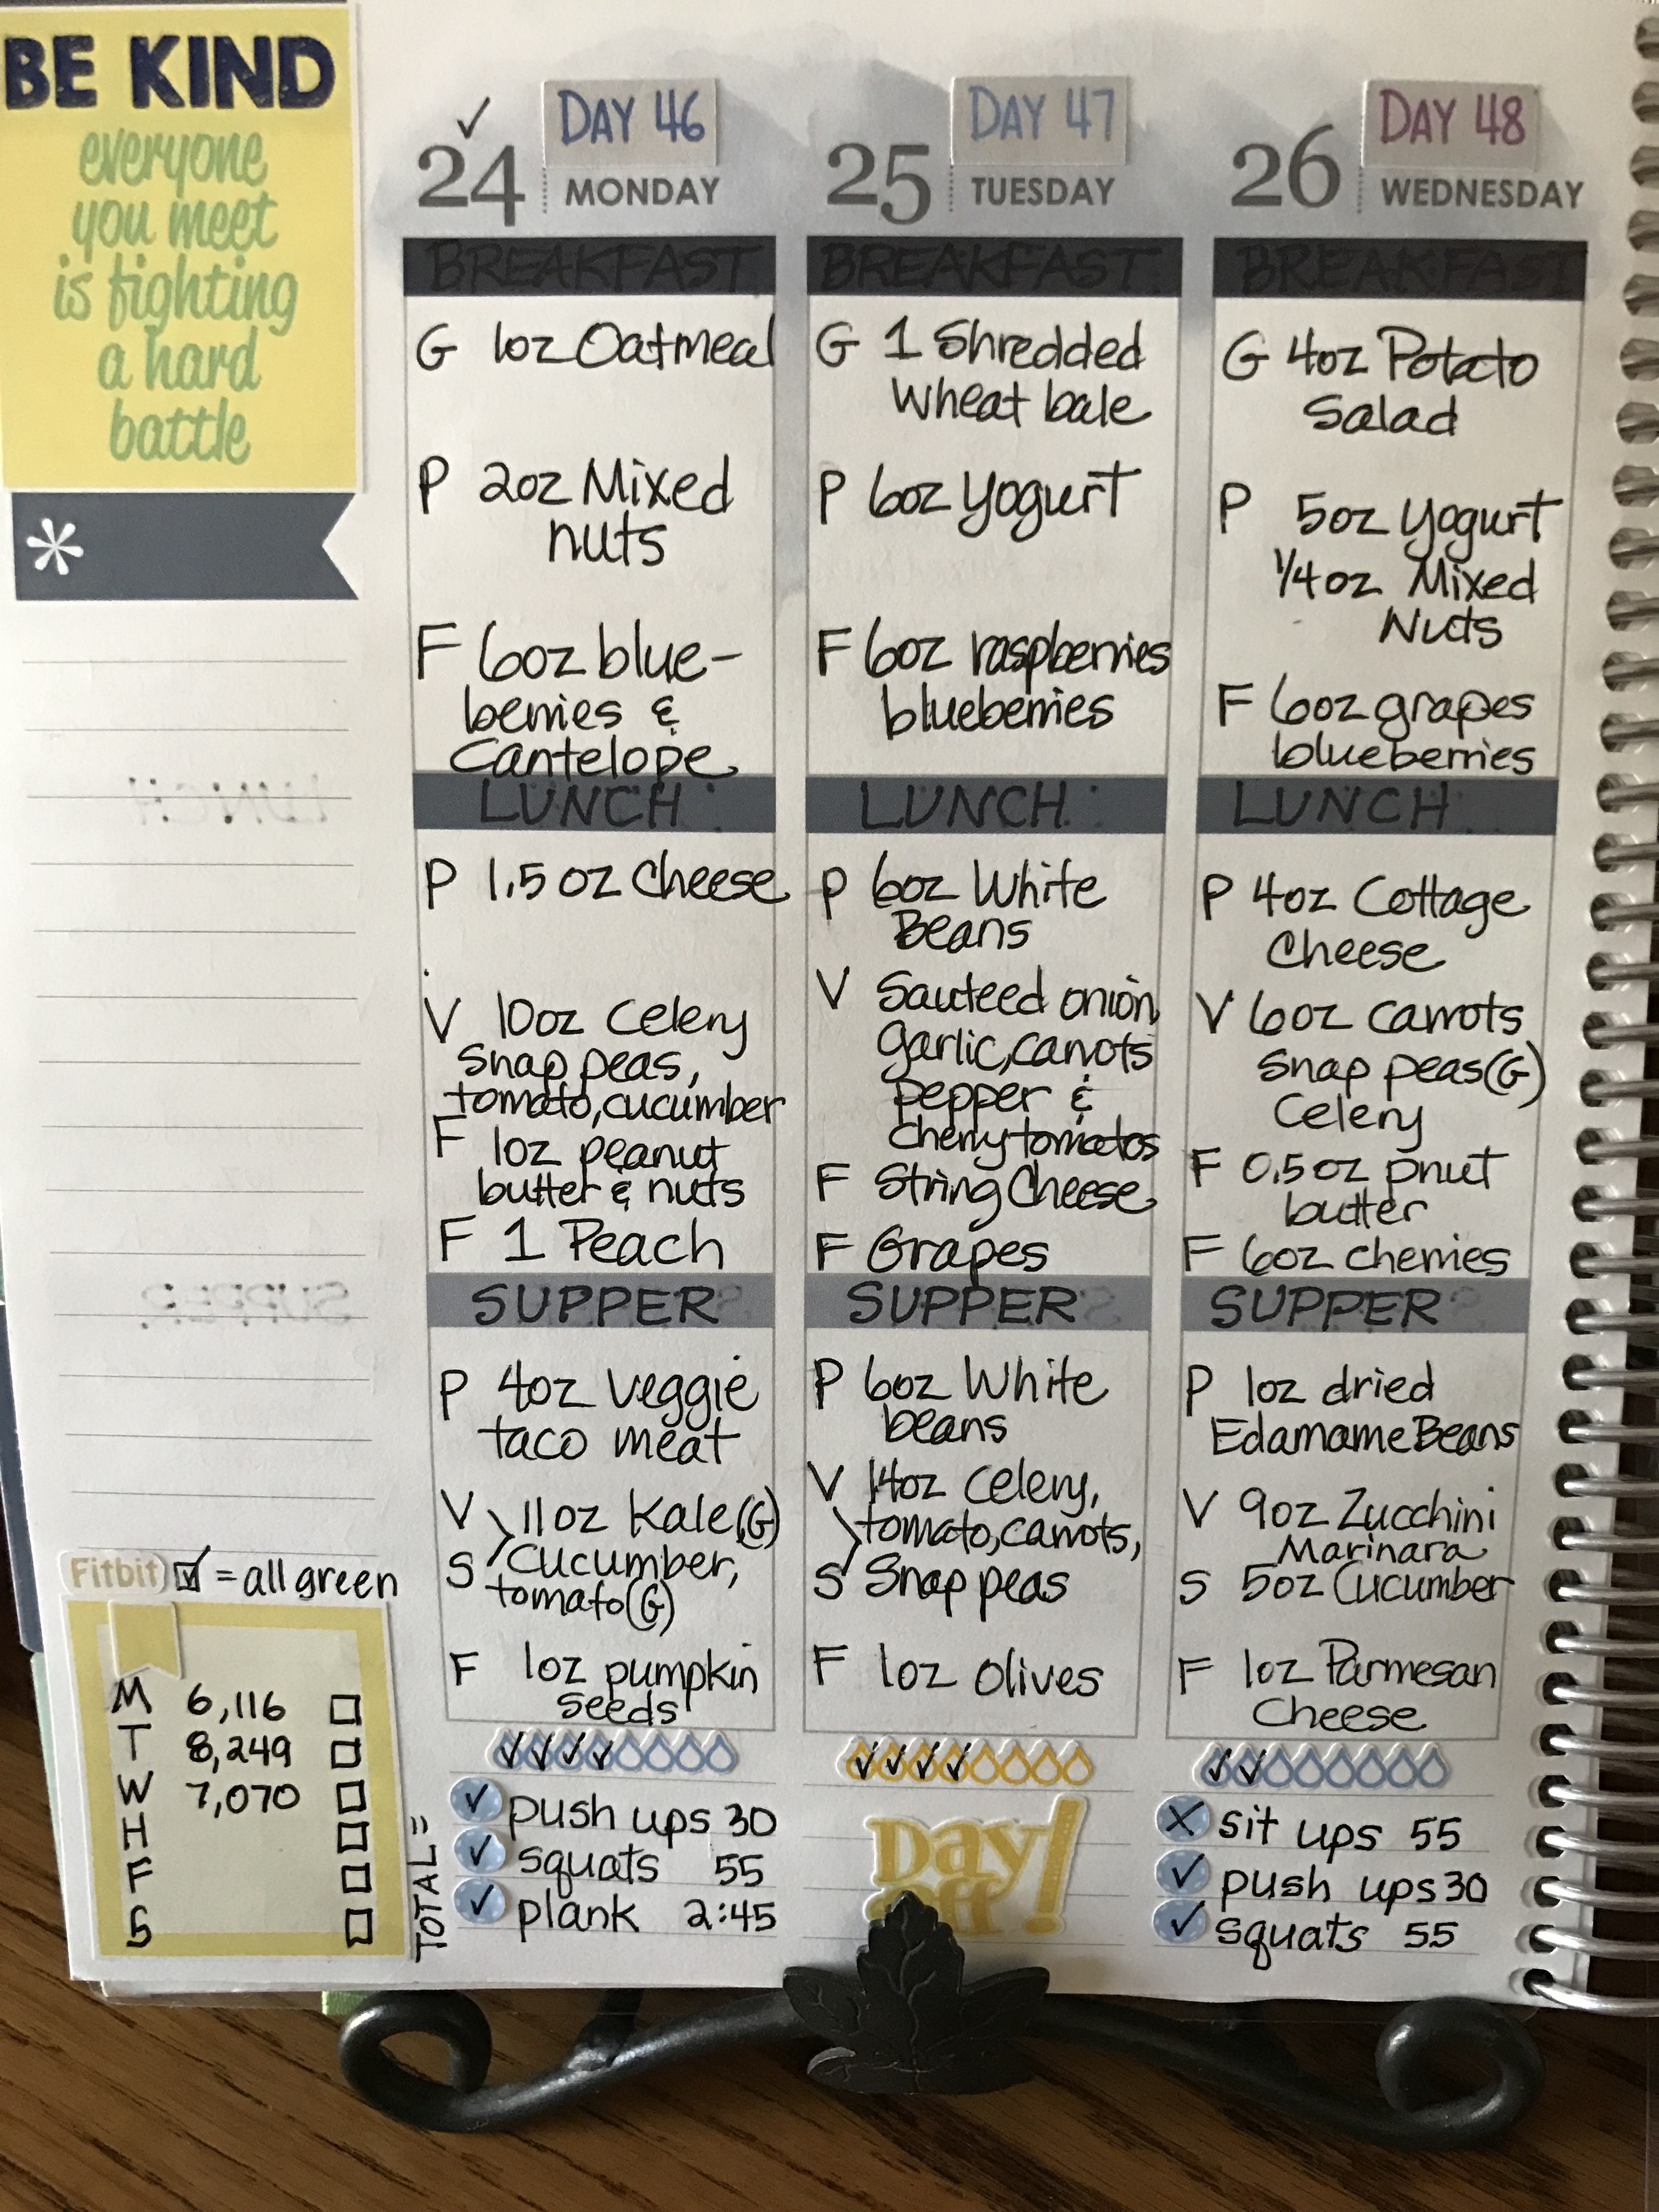 BE KIND
everyone
you meet
is fighting
a hard
battle
*
Fitbit ☑ = all green
M 6,116 ☐
T 8,249 ☐
W 7,070 ☐
H ☐
F ☐
S ☐
TOTAL =
✓ DAY 46
24 MONDAY
BREAKFAST
G 1oz Oatmeal
P 2oz Mixed
nuts
F 6oz blue-
berries &
Cantelope
LUNCH
P 1.5 oz Cheese
V 10oz Celery
Snap peas,
tomato, cucumber
F 1oz peanut
butter & nuts
F 1 Peach
SUPPER
P 4oz Veggie
taco meat
V 11oz Kale (G)
S Cucumber,
tomato (G)
F 1oz pumpkin
seeds
✓ push ups 30
✓ squats 55
✓ plank 2:45
DAY 47
25 TUESDAY
BREAKFAST
G 1 Shredded
Wheat bale
P 6oz Yogurt
F 6oz raspberries
blueberries
LUNCH
P 6oz White
Beans
V Sauteed onion,
garlic, carrots
pepper &
cherry tomatos
F String Cheese
F Grapes
SUPPER
P 6oz White
beans
V 14oz Celery,
tomato, carrots,
S Snap peas
F 1oz Olives
Day
off!
DAY 48
26 WEDNESDAY
BREAKFAST
G 4oz Potato
Salad
P 5oz Yogurt
1/4oz Mixed
Nuts
F 6oz grapes
blueberries
LUNCH
P 4oz Cottage
Cheese
V 6oz carrots
Snap peas (G)
Celery
F 0.5oz pnut
butter
F 6oz cherries
SUPPER
P 1oz dried
Edamame Beans
V 9oz Zucchini
Marinara
S 5oz Cucumber
F 1oz Parmesan
Cheese
X sit ups 55
✓ push ups 30
✓ squats 55